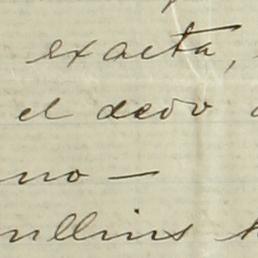 exacta,
el dedo
no —
ullins